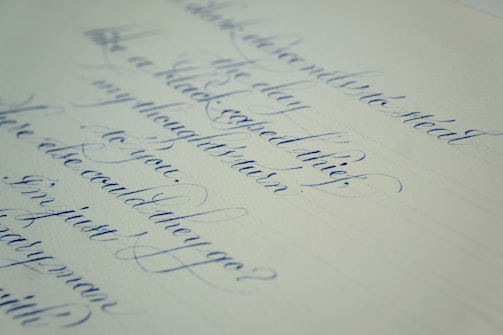 dusk descends to steal
the day
like a black-caped thief,
my thoughts turn
to you.
Where else could they go?
I'm just
man
with